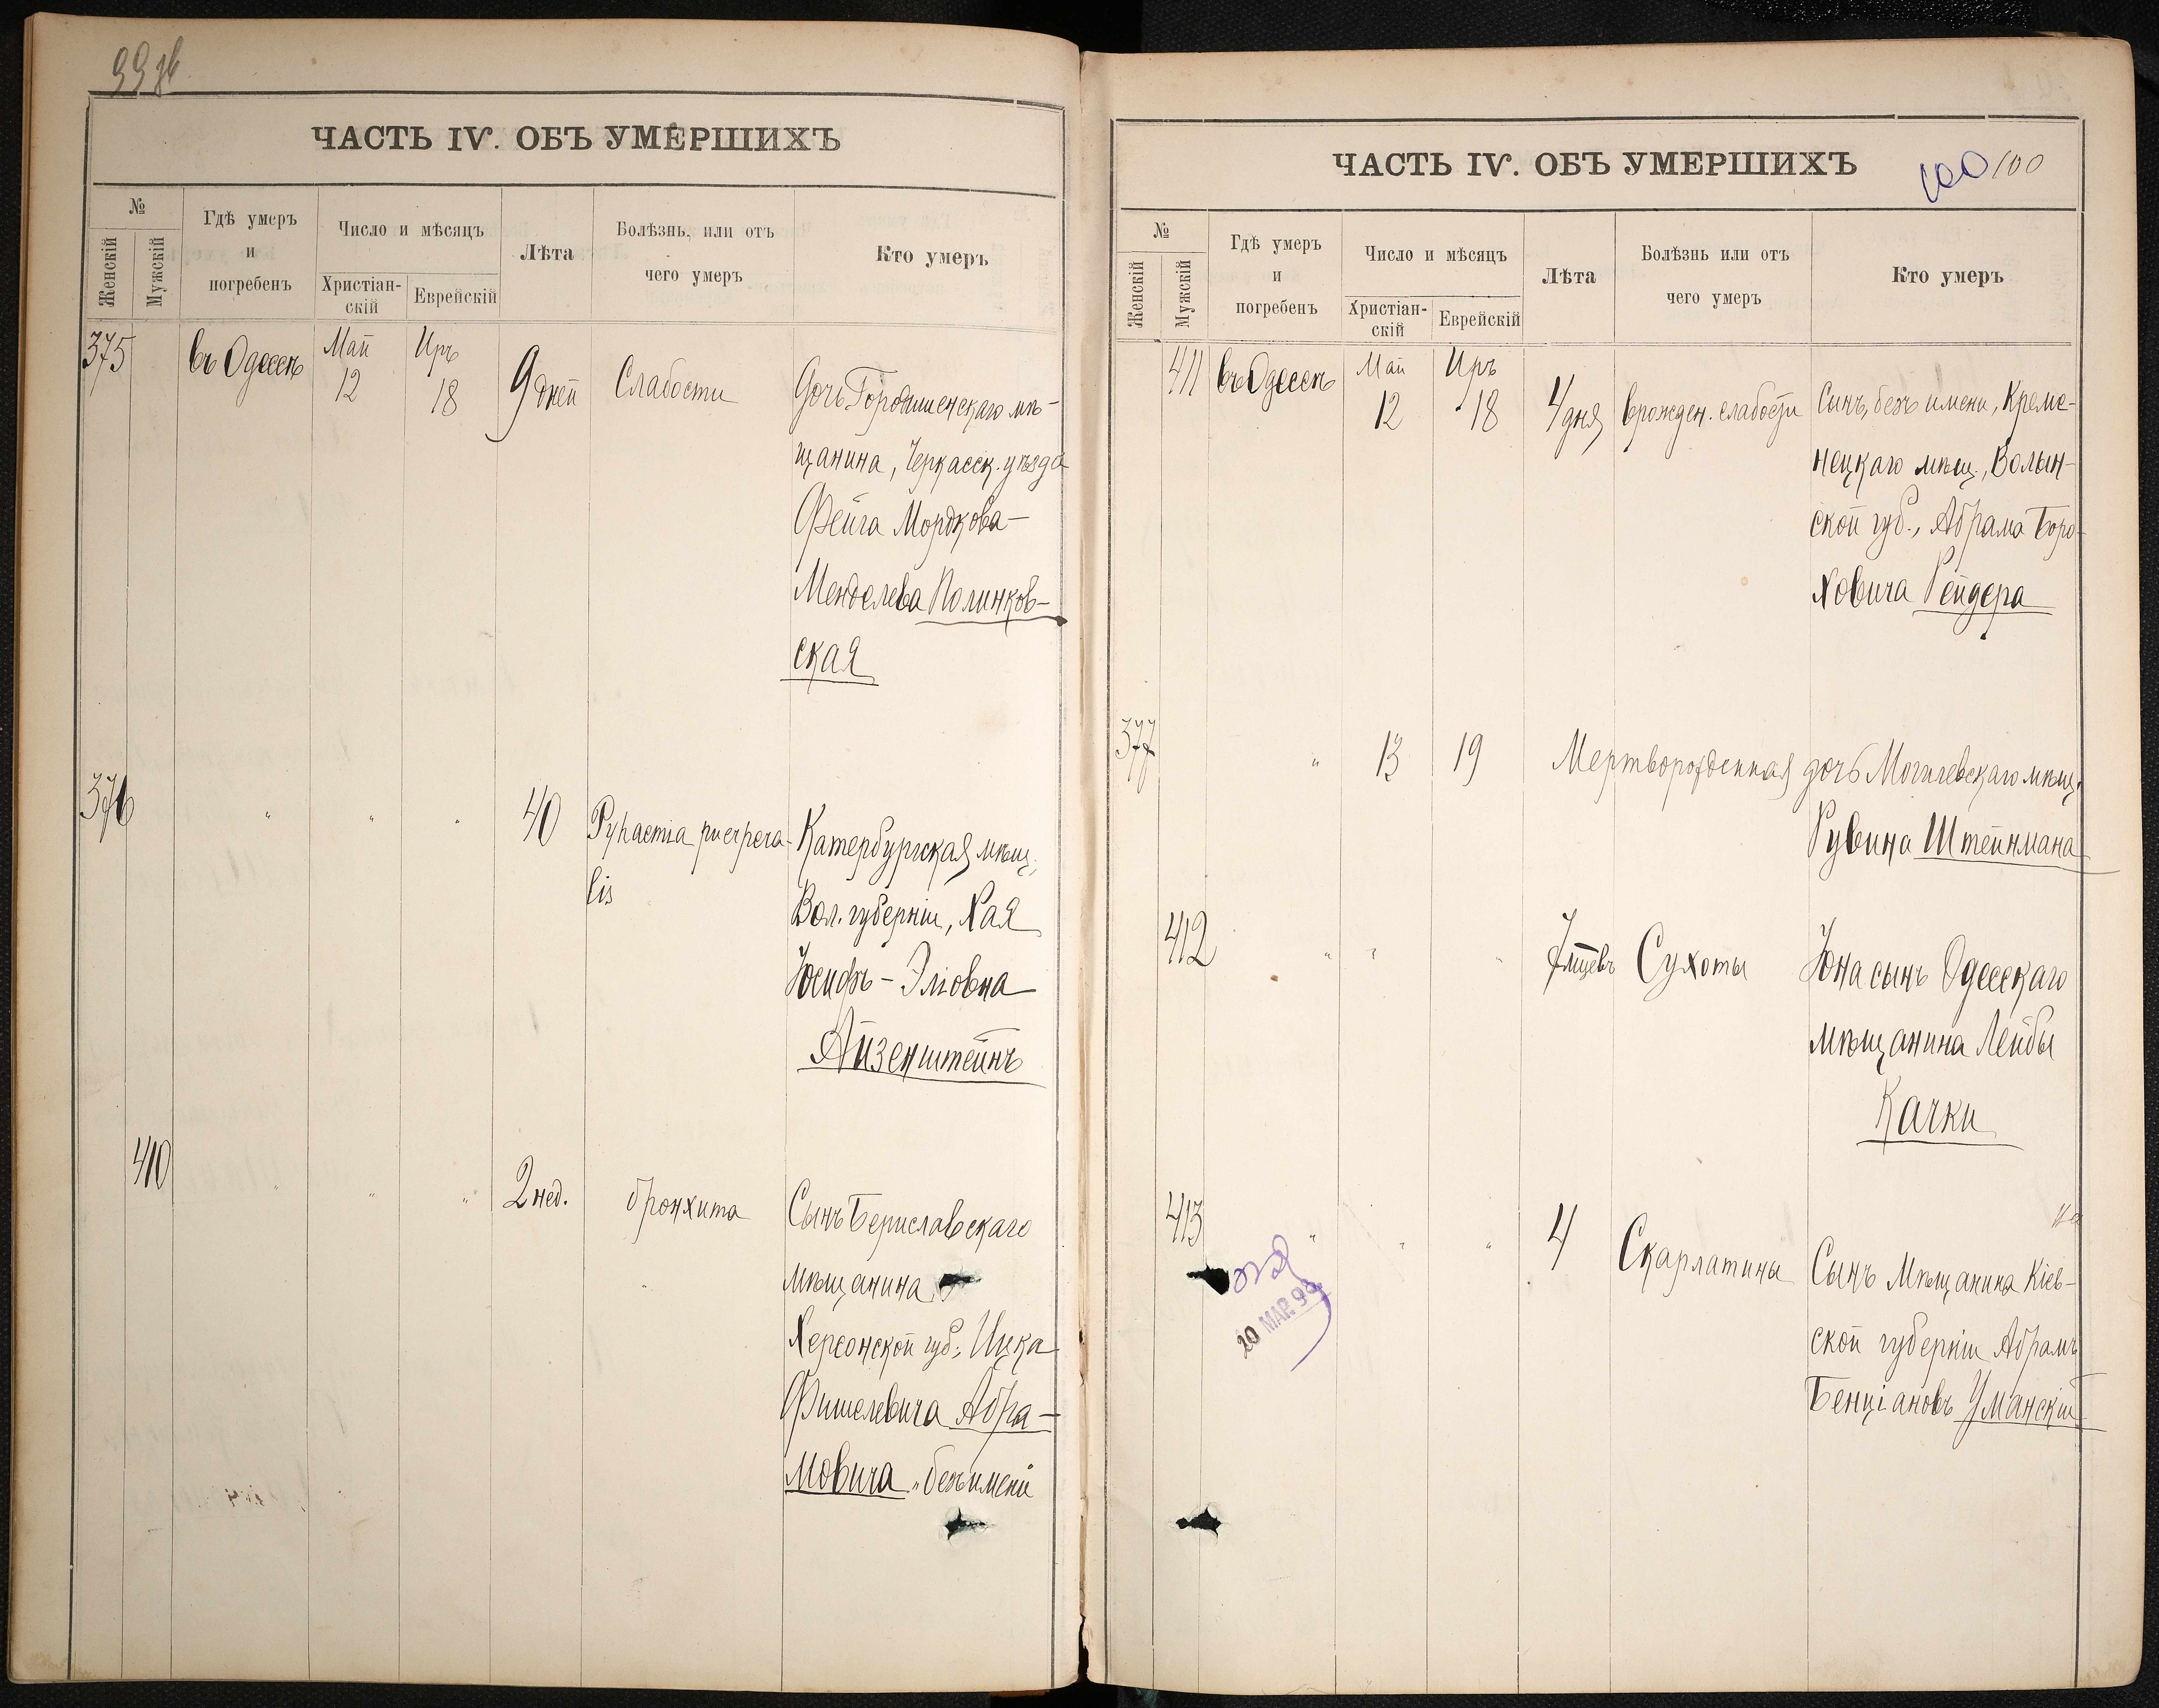 ЧАСТЬ IV. ОБЪ УМЕРШИХЪ
№
Женскій
Мужскій
Гдѣ умеръ
и
погребенъ
Число и мѣсяцъ
Христіан-
скій
Еврейскій
Лѣта
Болѣзнь, или отъ
чего умеръ
Кто умеръ
375
въ Одессѣ
Май
12
Иръ
18
9 дней
Слабости
Дочь Городищенскаго мѣ-
щанина, Черкасск. уѣзда
Фейга Мордкова-
Менделева Полинков-
ская
376
"
"
"
40
Pyhaemia puerpera-
lis
Катербургская мѣщ.
Вол. губерніи, Хая
Іосифъ-Эліовна
Айзенштейнъ
410
"
"
"
2 нед.
бронхита
Сынъ Бериславскаго
мѣщанина
Херсонской губ., Ицка
Фишелевича Абра-
мовича "безъ имени
ЧАСТЬ IV. ОБЪ УМЕРШИХЪ
100
100
№
Женскій
Мужскій
Гдѣ умеръ
и
погребенъ
Число и мѣсяцъ
Христіан-
скій
Еврейскій
Лѣта
Болѣзнь или отъ
чего умеръ
Кто умеръ
411
въ Одессѣ
Май
12
Иръ
18
4 дня
врожден. слабости
Сынъ, безъ имени, Креме-
нецкаго мѣщ., Волын-
ской губ., Абрама Боро-
ховича Рейдера
377
"
13
19
Мертворожденная дочь Могилевскаго мѣщ.
Рувина Штейнмана
412
"
"
"
7 мцевъ
Сухоты
Іона сынъ Одесскаго
мѣщанина Лейбы
Качки
413
"
"
"
4
Скарлатины
Сынъ Мѣщанина Кіев-
ской губерніи Абрамъ
Бенціановъ Уманскій
20 МАР. 99